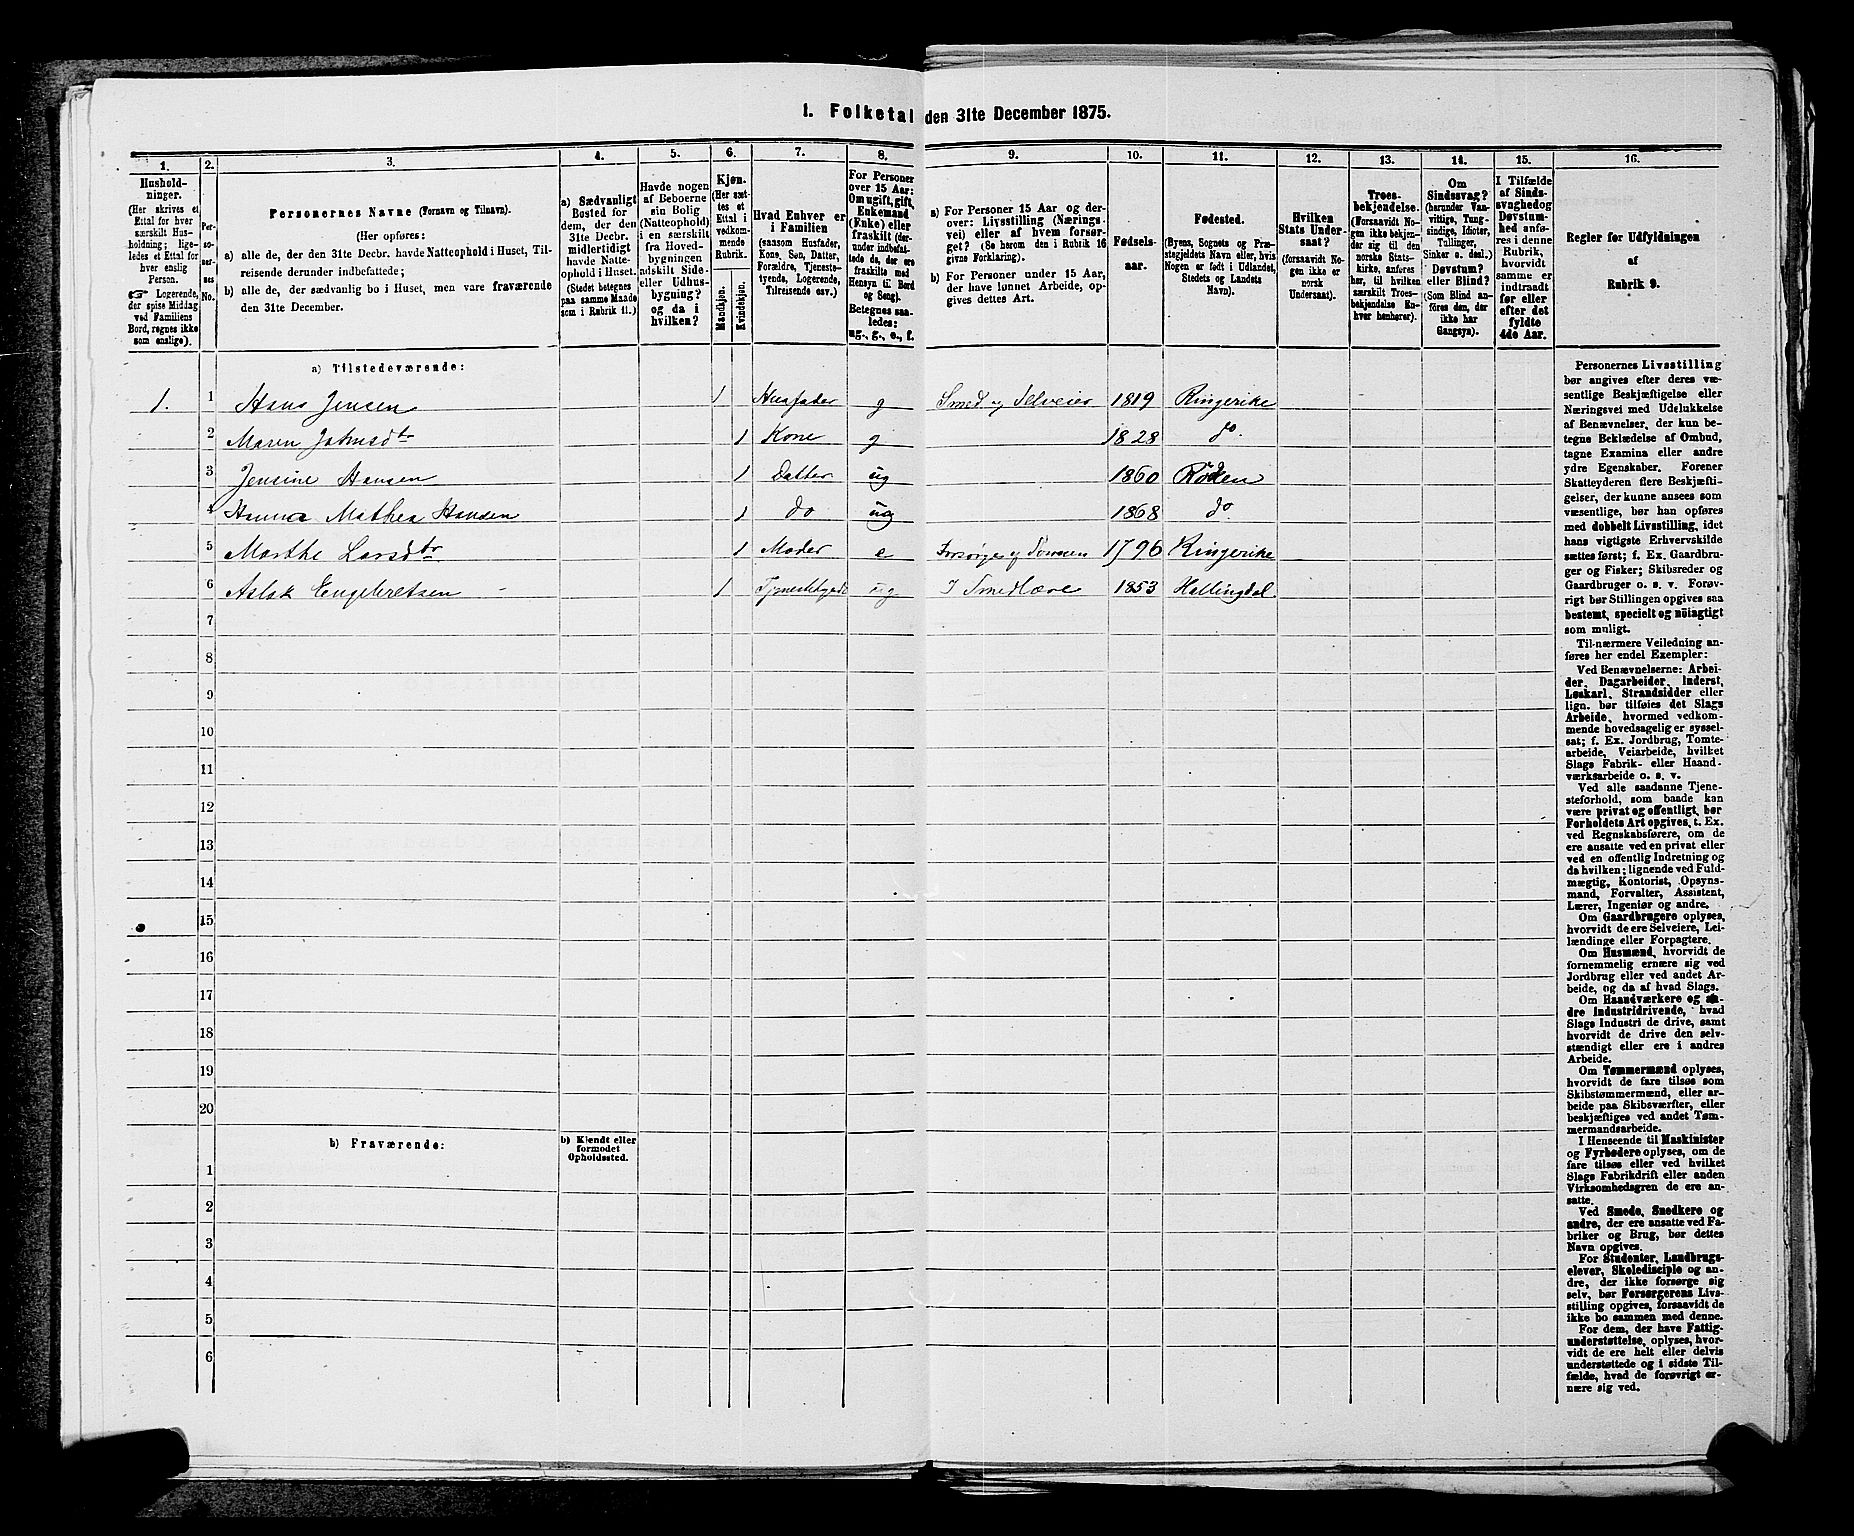 1. Folketal den 31te December 1875.
1. 2. 3. 4. 5. 6. 7. 8. 9. 10. 11. 12. 13. 14. 15. 16.
Hushold-
ninger.
(Her skrives et
Ettal for hver
særskilt Hus-
holdning; lige-
ledes et Ettal for
hver enslig
Person.
☞ Logerende,
der spise Middag
ved Familiens
Bord, regnes ikke
som enslige).
Per-
so-
ner-
nes
No.
Personernes Navne (Fornavn og Tilnavn).
(Her opføres:
a) alle de, der den 31te Decbr. havde Natteophold i Huset, Til-
reisende derunder indbefattede;
b) alle de, der sædvanlig bo i Huset, men vare fraværende
den 31te December.
a) Sædvanligt
Bosted for
dem, der den
31te Decbr.
midlertidigt
havde Natte-
ophold i Huset.
(Stedet betegnes
paa samme Maade
som i Rubrik 11.)
Havde nogen
af Beboerne
sin Bolig
(Natteophold)
i en særskilt
fra Hoved-
bygningen
adskilt Side-
eller Udhus-
bygning?
og da i
hvilken?
Kjøn.
(Her sæt-
tes et
Ettal i
vedkom-
mende
Rubrik.
Mandkjøn.
Kvindekjøn.
Hvad Enhver er
i Familien
(saasom Husfader,
Kone, Søn, Datter,
Forældre, Tjeneste-
tyende, Logerende,
Tilreisende osv.)
For Personer
over 15 Aar:
Om ugift, gift,
Enkemand
(Enke) eller
fraskilt (der-
under indbefat-
tede de, der ere
fraskilte med
Hensyn til Bord
og Seng).
Betegnes saa-
ledes:
ug., g., e., f.
a) For Personer 15 Aar og der-
over: Livsstilling (Nærings-
vei) eller af hvem forsør-
get? (Se herom den i Rubrik 16
givne Forklaring).
b) For Personer under 15 Aar,
der have lønnet Arbeide, op-
gives dettes Art.
Fødsels-
aar.
Fødested.
(Byens, Sognets og Præ-
stegjeldets Navn eller, hvis
Nogen er født i Udlandet,
Stedets og Landets
Navn).
Hvilken
Stats Under-
saat?
(forsaavidt No-
gen ikke er
norsk
Undersaat).
Troes-
bekjendelse.
(Forsaavidt No-
gen ikke bekjen-
der sig til den
norske Stats-
kirke, anføres
her, til hvilken
særskilt Troes-
bekjendelse En-
hver henhører).
Om
Sindssvag?
(herunder Van-
vittige, Tung-
sindige, Idioter,
Tullinger,
Sinker o. desl.)
Døvstum?
eller Blind?
(Som Blind an-
føres den, der
ikke har
Gangsyn).
I Tilfælde
af Sinds-
svaghed og
Døvstum-
hed anfø-
res i denne
Rubrik,
hvorvidt
samme er
indtraadt
før eller
efter det
fyldte
4de Aar.
Regler for Udfyldningen
af
Rubrik 9.
a) Tilstedeværende:
1. 1 Hans Jensen 1 Husfader g Smed og Selveier 1819 Ringerike
2 Maren Johnsdtr 1 Kone g 1828 do.
3 Jensine Hansen 1 Datter ug 1860 Røken
4 Hanna Mathea Hansen 1 do ug 1868 do
5 Marthe Larsdtr 1 Moder e Forsørges af Sønnen 1796 Ringerike
6 Aslak Engebretsen 1 Tjenestetyende ug I Smedlære 1853 Hallingdal
7
8
9
10
11
12
13
14
15
16
17
18
19
20
b) Fraværende:
b) Kjendt eller
formodet
Opholdssted.
1
2
3
4
5
6
Personernes Livsstilling
bør angives efter deres væ-
sentlige Beskjæftigelse eller
Næringsvei med Udelukkelse
af Benævnelser, der kun be-
tegne Beklædelse af Ombud,
tagne Examina eller andre
ydre Egenskaber. Forener
Skatteyderen flere Beskjæfti-
gelser, der kunne ansees som
væsentlige, bør han opføres
med dobbelt Livsstilling, idet
hans vigtigste Erhvervskilde
sættes først; f. Ex. Gaardbru-
ger og Fisker; Skibsreder og
Gaardbruger o. s. v. Forøv-
rigt bør Stillingen opgives saa
bestemt, specielt og nöiagtigt
som muligt.
Til nærmere Veiledning an-
føres her endel Exempler:
Ved Benævnelserne: Arbei-
der, Dagarbeider, Inderst,
Løskarl, Strandsidder eller
lign. bør tilføies det Slags
Arbeide, hvormed vedkom-
mende hovedsagelig er syssel-
sat; f. Ex. Jordbrug, Tomte-
arbeide, Veiarbeide, hvilket
Slags Fabrik- eller Haand-
værksarbeide o. s. v.
Ved alle saadanne Tjene-
steforhold, som baade kan
være privat og offentligt, bør
Forholdets Art opgives, t. Ex.
ved Regnskabsførere, om de
ere ansatte ved en privat eller
ved en offentlig Indretning og
da hvilken; lignende ved Fuld-
mægtig, Kontorist, Opsyns-
mand, Forvalter, Assistent,
Lærer, Ingeniør og andre.
Om Gaardbrugere oplyses,
hvorvidt de ere Selveiere, Lei-
lændinge eller Forpagtere.
Om Husmænd, hvorvidt de
fornemmelig ernære sig ved
Jordbrug eller ved andet Ar-
beide, og da af hvad Slags.
Om Haandværkere og an-
dre Industridrivende, hvad
Slags Industri de drive, samt
hvorvidt de drive den selv-
stændigt eller ere i andres
Arbeide.
Om Tømmermænd oplyses,
hvorvidt de fare tilsøs som
Skibstømmermænd, eller ar-
beide paa Skibsværfter, eller
beskjæftiges ved andet Tøm-
mermandsarbeide.
I Henseende til Maskinister
og Fyrbødere oplyses, om de
fare tilsøs eller ved hvilket
Slags Fabrikdrift eller anden
Virksomhedsgren de ere an-
satte.
Ved Smede, Snedkere og
andre, der ere ansatte ved Fa-
briker og Brug, bør dettes
Navn opgives.
For Studenter, Landbrugs-
elever, Skoledisciple og an-
dre, der ikke forsørge sig
selv, bør Forsørgerens Livs-
stilling opgives, forsaavidt de
ikke bo sammen med denne.
For dem, der have Fattig-
understøttelse, oplyses, hvor-
vidt de ere helt eller delvis
understøttede og i sidste Til-
fælde, hvad de forøvrigt er-
nære sig ved.